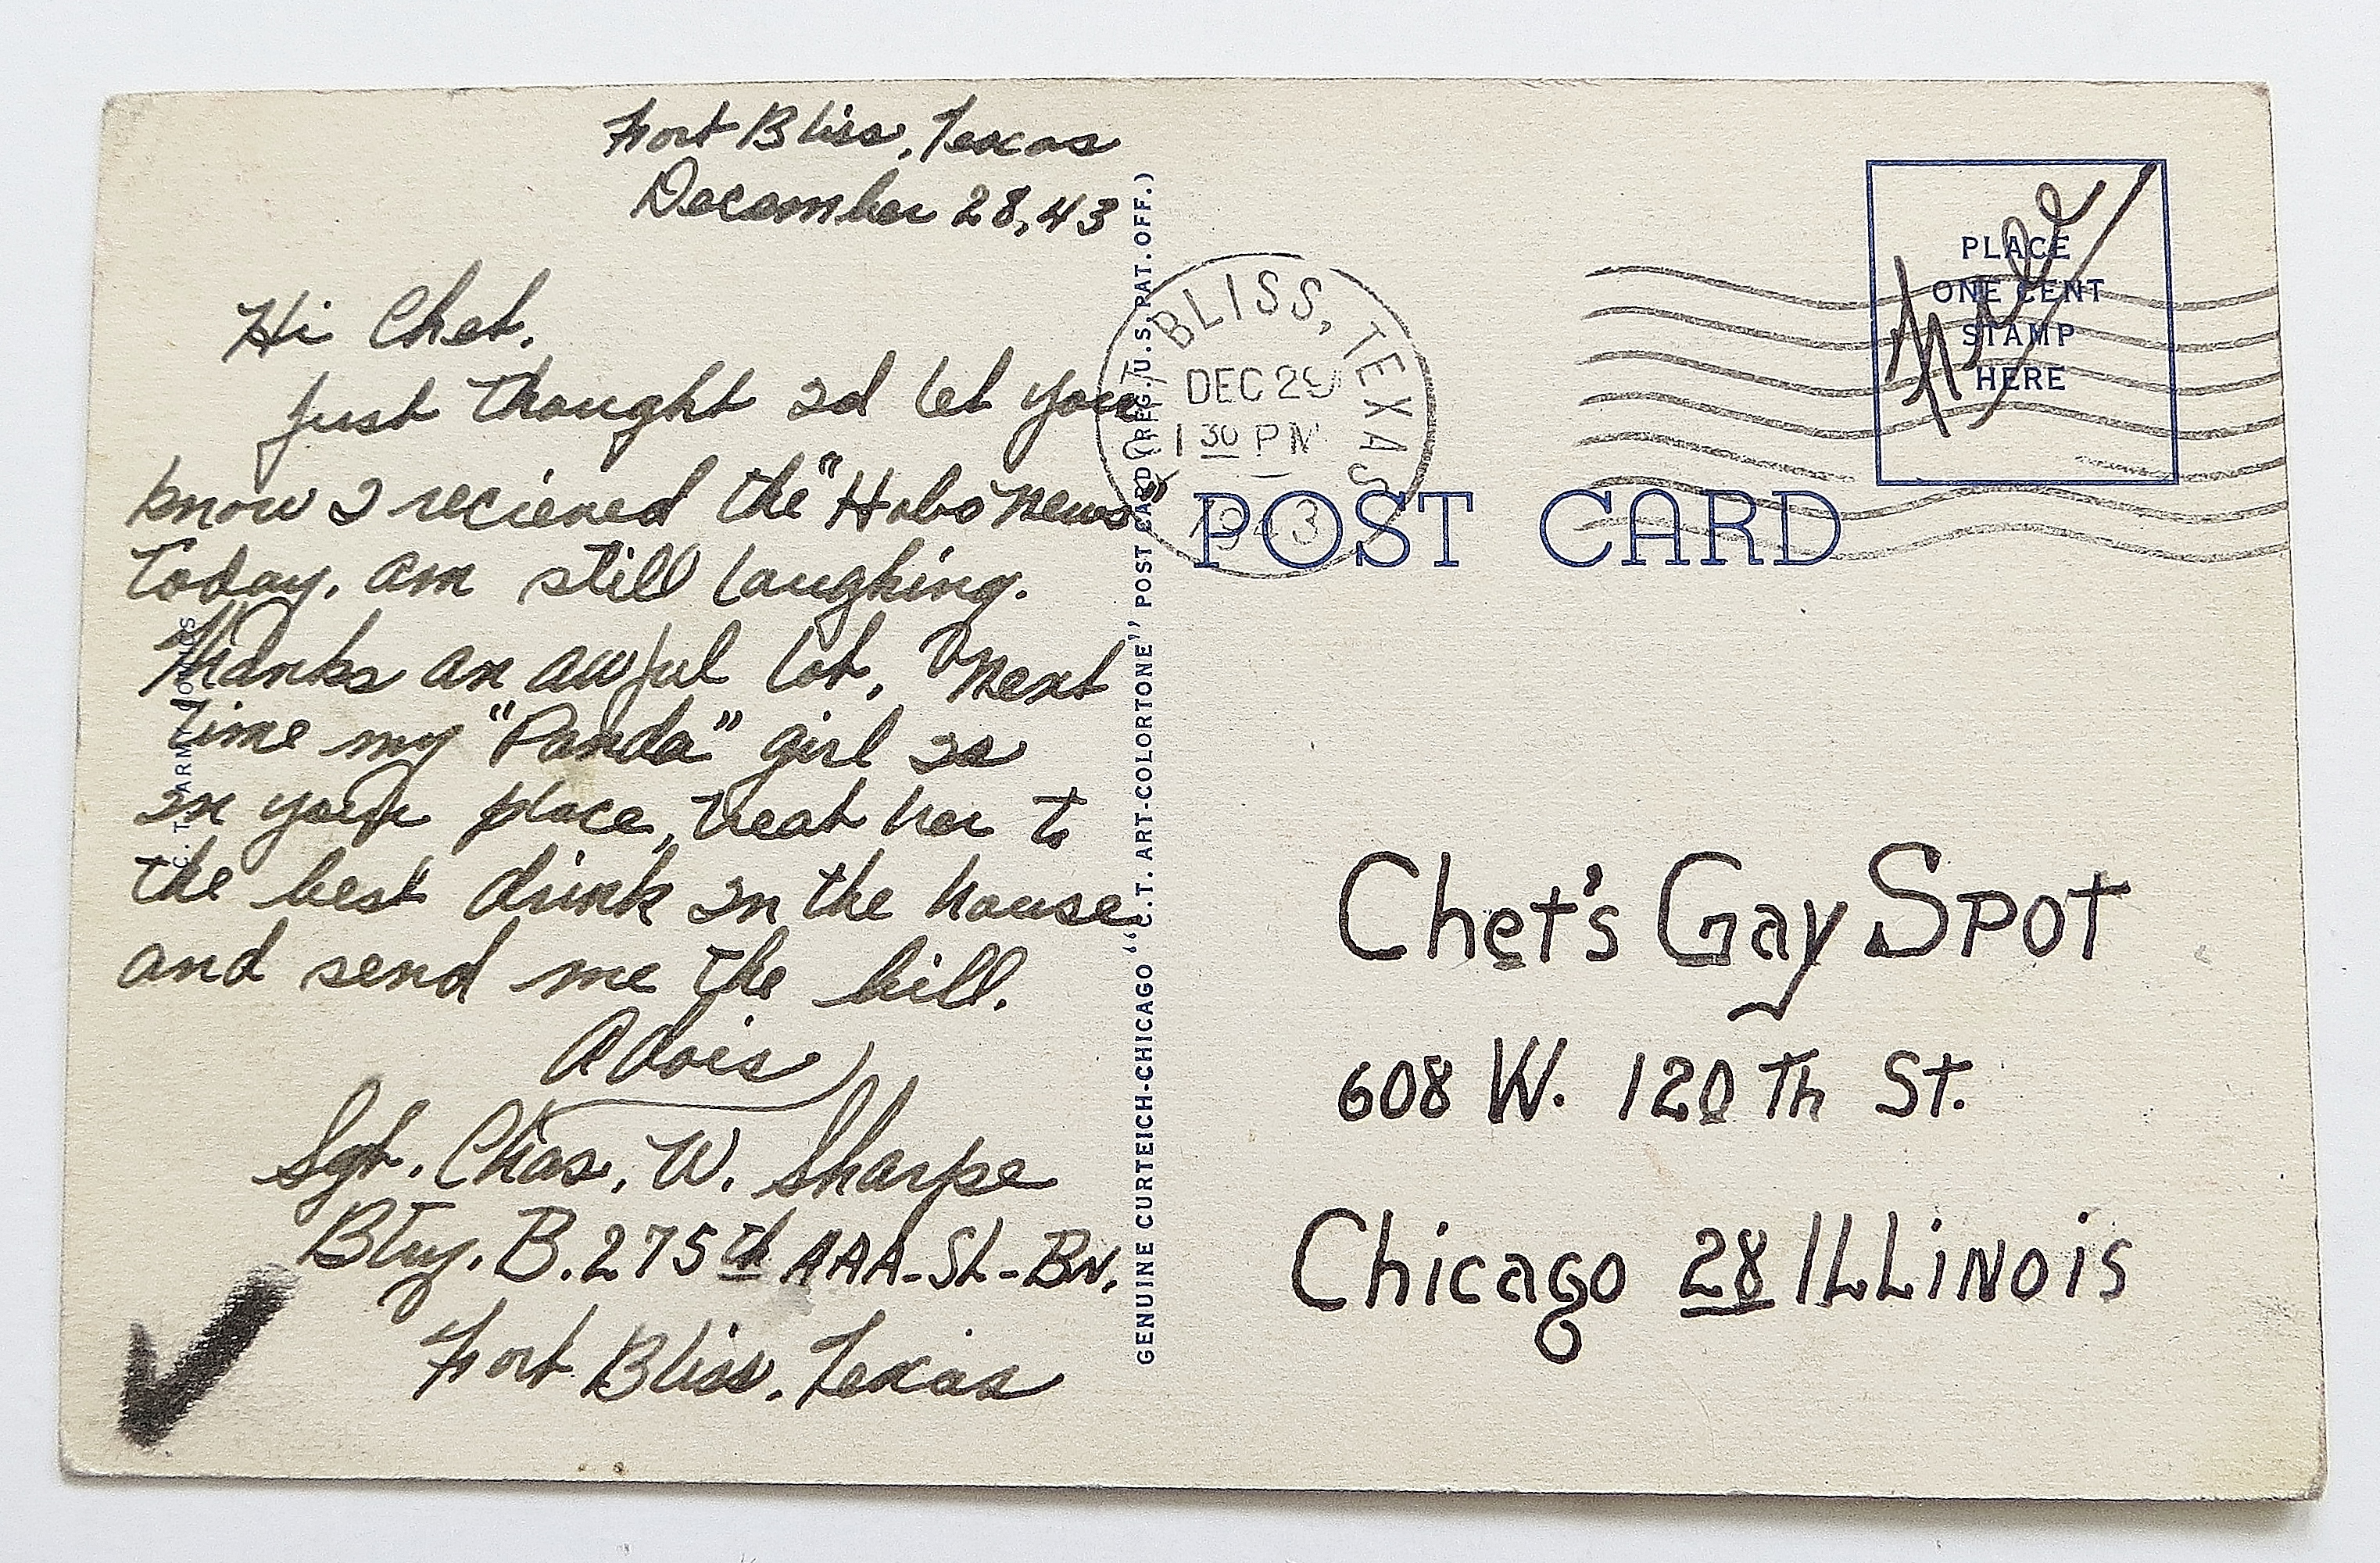 Fort Bliss, Texas
December 28, 43
Hi Chet,
Just thought Id let you
know I recieved the "Hobo News"
Today. Am still laughing.
Thanks an awful lot. Next
time my "Panda" girl Is
In your place, treat her to
the best drink In the house
and send me the bill.
Adois
Sgt. Chas. W. Sharpe
Bty. B. 275th AAA-SL-BN.
Fort Bliss, Texas
C. T. ARMY COMICS
GENUINE CURTEICH-CHICAGO "C.T. ART-COLORTONE" POST CARD (REG. U.S. PAT. OFF.)
FORT BLISS, TEXAS
DEC 29
1 30 PM
1943
POST CARD
PLACE
ONE CENT
STAMP
HERE
Free
Chet's Gay Spot
608 W. 120Th St.
Chicago 28 ILLiNois